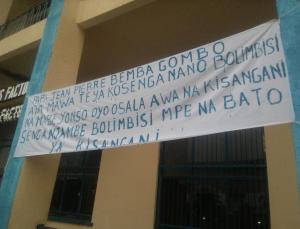 PAPA JEAN PIERRE BEMBA GOMBO
AYA MAWA TE YA KOSENGA NANO BOLIMBISI
NA MABE YONSO OYO OSALA AWA NA KISANGANI
SENGA NZAMBE BOLIMBISI MPE NA BATO
YA KISANGANI
FACTU